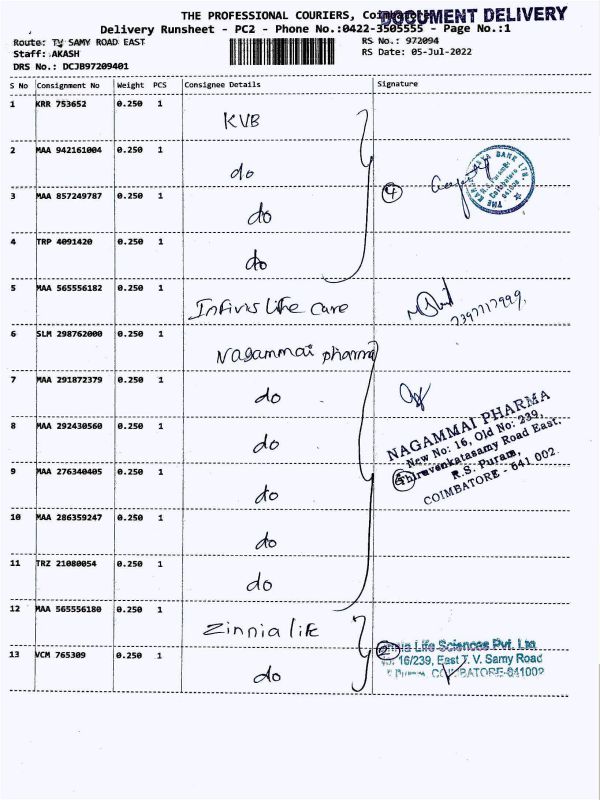 THE PROFESSIONAL COURIERS, Coimbatore
DOCUMENT DELIVERY
Delivery Runsheet - PC2 - Phone No.:0422-3505555 - Page No.:1
Route: TV SAMY ROAD EAST
RS No.: 972094
Staff: AKASH
RS Date: 05-Jul-2022
DRS No.: DCJB97209401
S No Consignment No Weight PCS Consignee Details Signature
1 KRR 753652 0.250 1 KVB
2 MAA 942161004 0.250 1 do
3 MAA 857249787 0.250 1 do
4
4 TRP 4091420 0.250 1 do
5 MAA 565556182 0.250 1 Infivis life care
6 SLM 298762000 0.250 1 Nagammai pharma
7 MAA 291872379 0.250 1 do
8 MAA 292430560 0.250 1 do
NAGAMMAI PHARMA
New No: 16, Old No: 239,
Thiruvenkatasamy Road East,
R.S. Puram,
COIMBATORE - 641 002.
9 MAA 276340405 0.250 1 do
10 MAA 286359247 0.250 1 do
11 TRZ 21080054 0.250 1 do
12 MAA 565556180 0.250 1 Zinnia life
13 VCM 765309 0.250 1 do
2
Life Sciences Pvt. Ltd
16/239, East T. V. Samy Road
COIMBATORE-641002